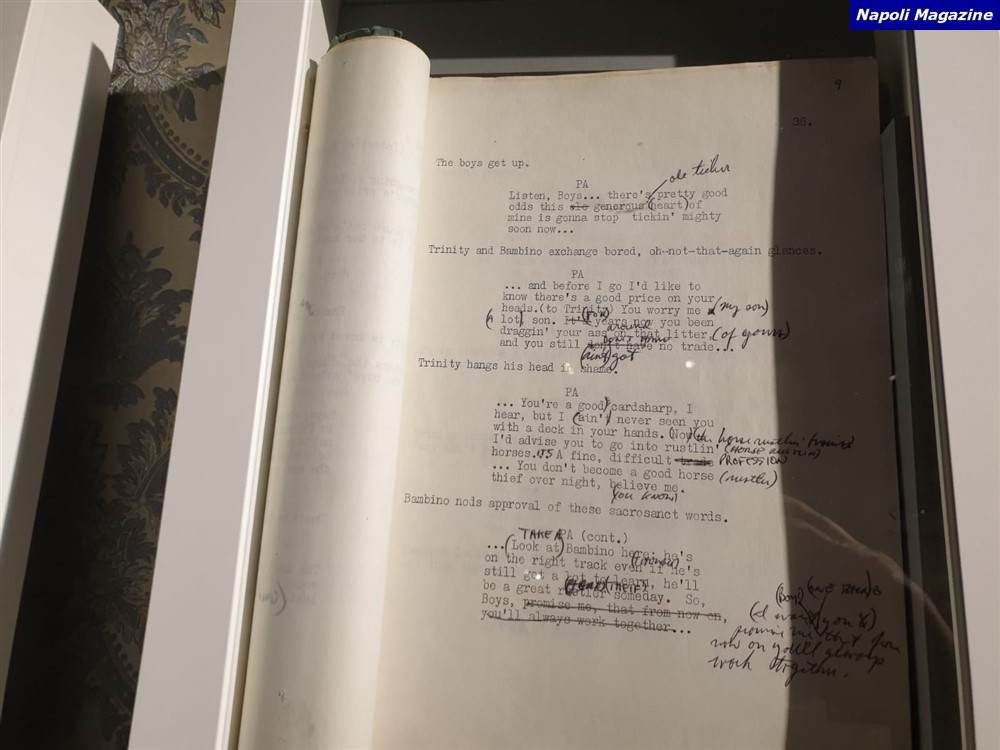 Napoli Magazine
9
36.
The boys get up.
ole ticker
PA
Listen, Boys... there's pretty good
odds this ole generous (heart) of
mine is gonna stop tickin' mighty
soon now...
Trinity and Bambino exchange bored, oh-not-that-again glances.
PA
... and before I go I'd like to
know there's a good price on your
heads. (to Trinity) You worry me (my son)
a lot, son. It's (FOR) years now you been
around
draggin' your ass on that litter, (of yours)
DON'T
and you still don't have no trade...
(ain't) got
Trinity hangs his head in shame.
PA
... You're a good cardsharp, I
hear, but I (ain't) never seen you
with a deck in your hands. Now horse rustlin'
I'd advise you to go into rustlin'
horses. IT'S A fine, difficult trade PROFESSION
... You don't become a good horse (rustler)
thief over night, believe me.
(you know)
Bambino nods approval of these sacrosanct words.
TAKE A PA (cont.)
...(Look at) Bambino here: he's
on the right track even if he's
still got a lot to learn, he'll
THIEF
be a great rustler someday. So,
Boys, promise me, that from now on,
you'll always work together...
(Boys)
(I want you
promise me that from
now on you'll always
work together.